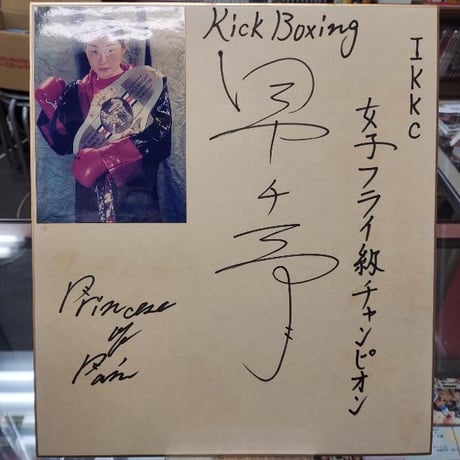 Kick Boxing
IKKC
女子フライ級チャンピオン
早千予
Princess
of
Pain